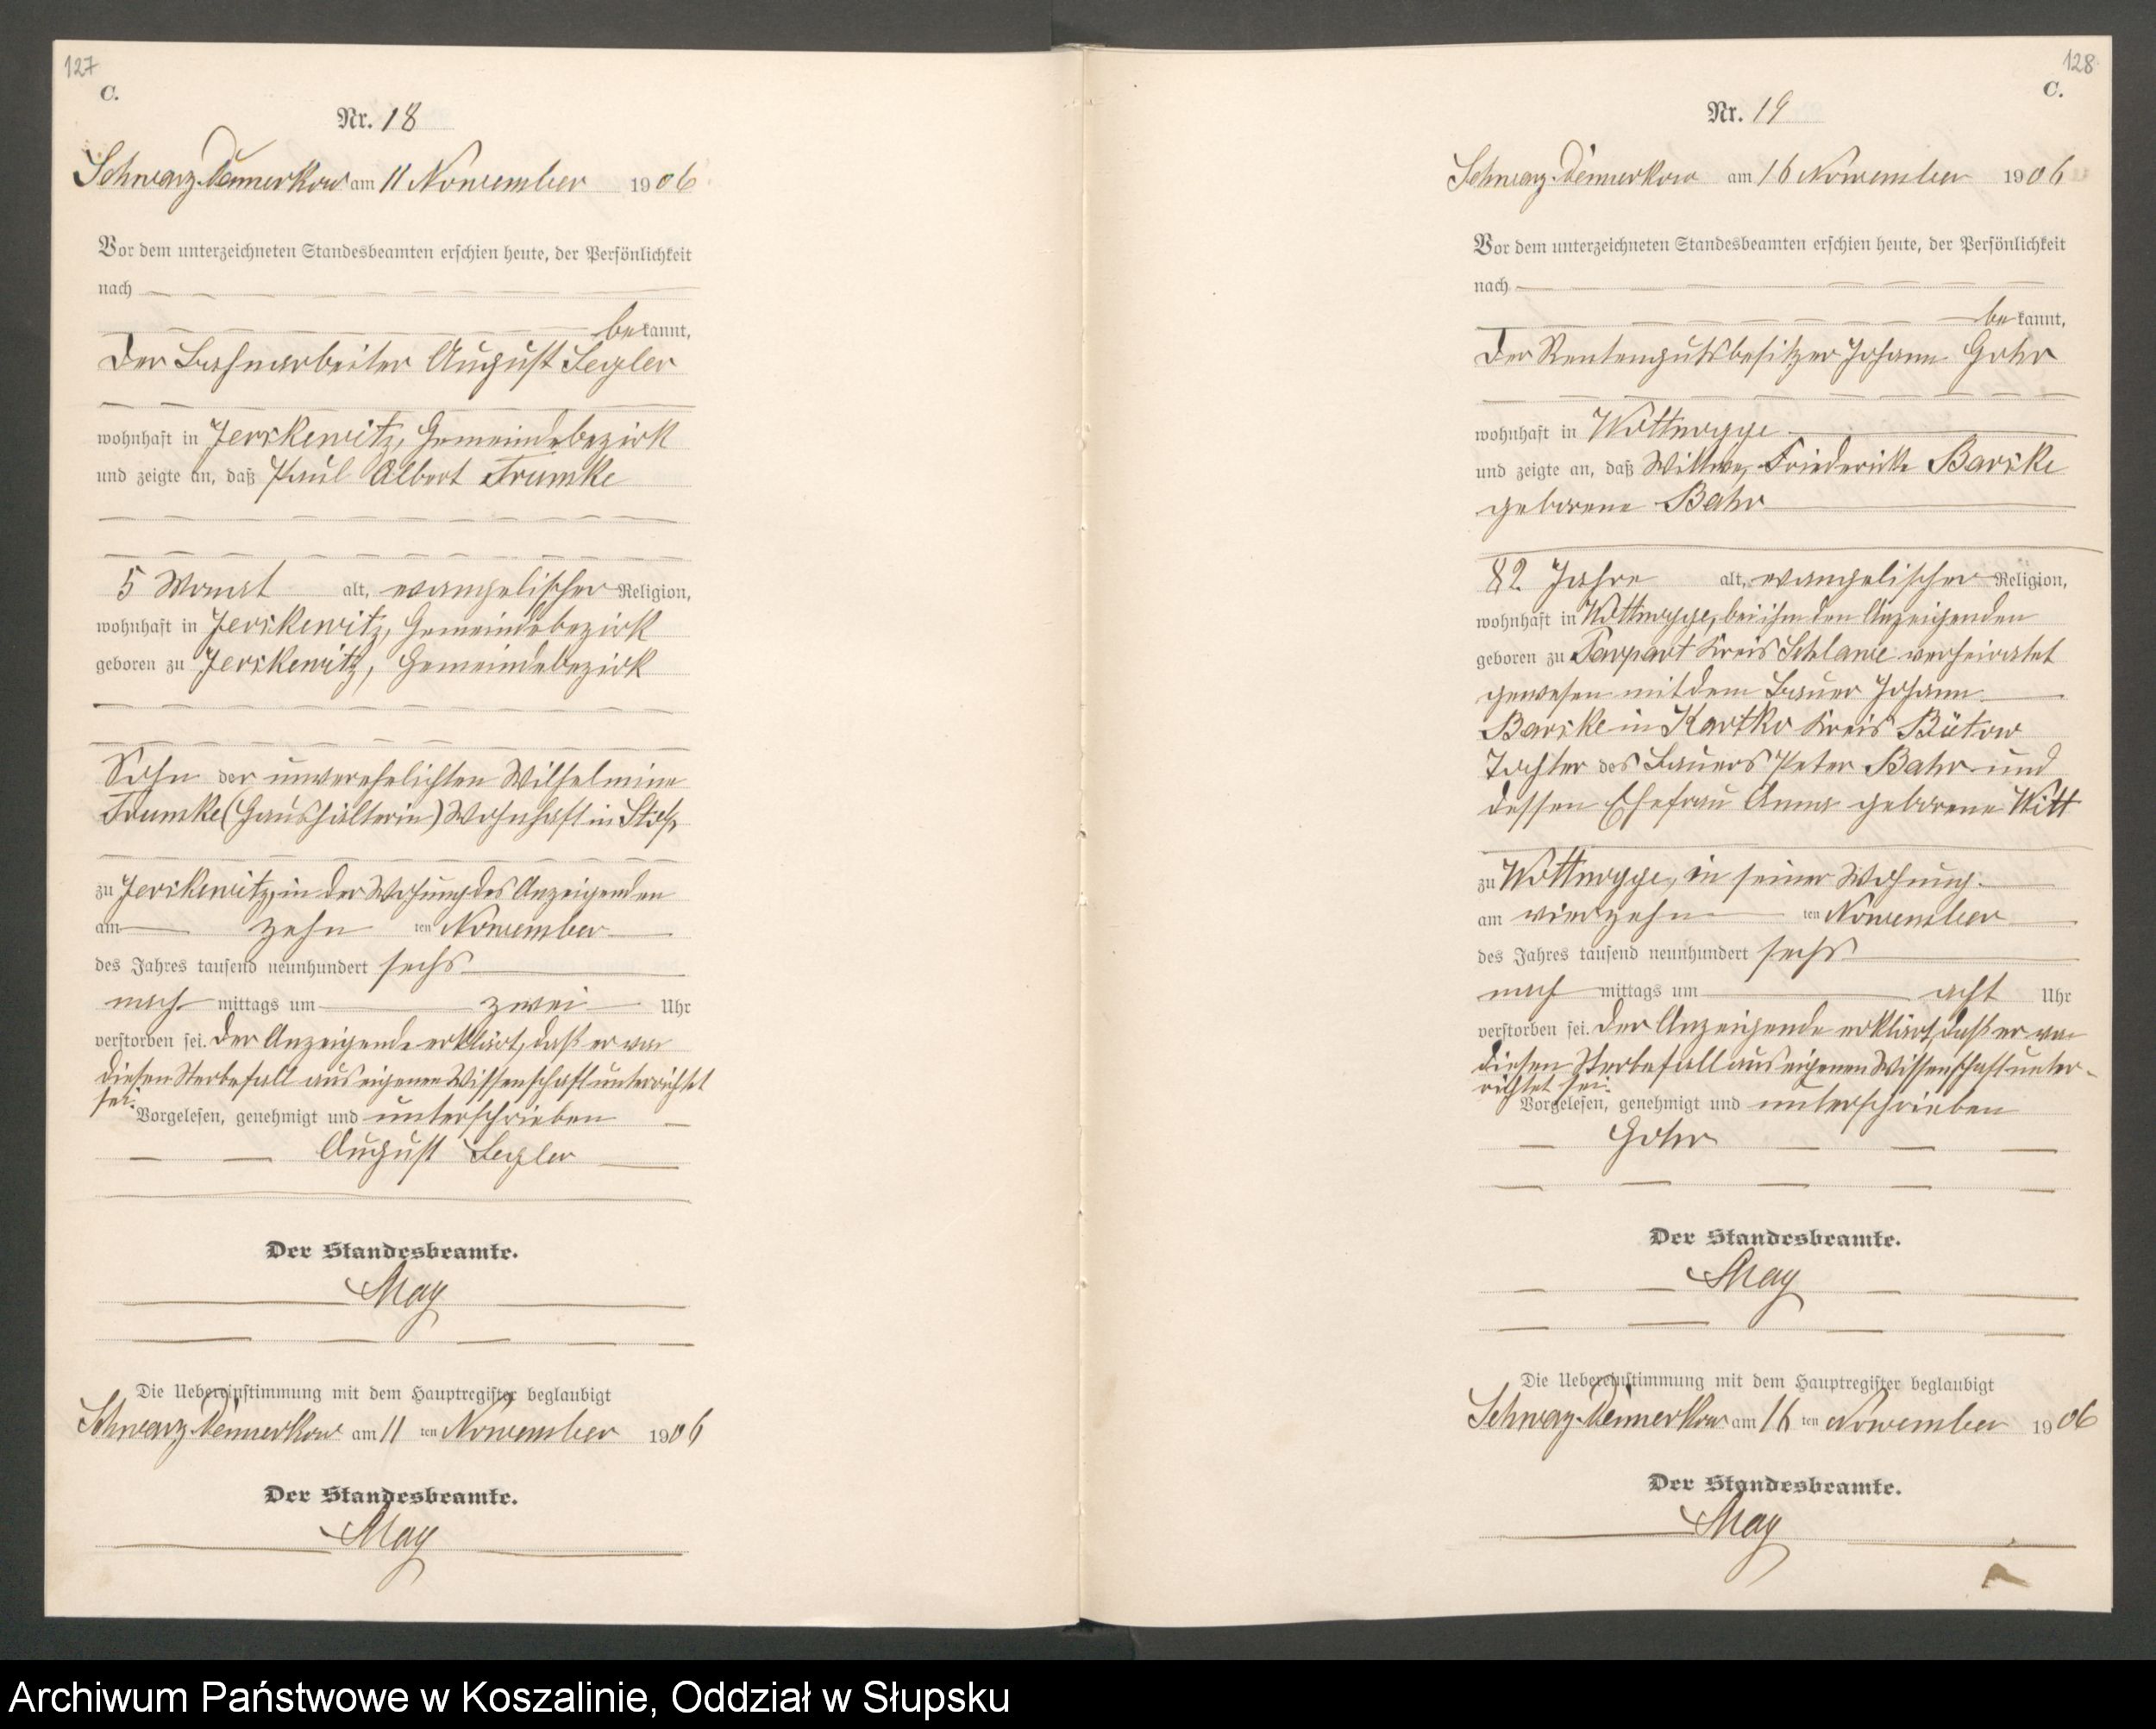 127
C.
Nr. 18
Schwarz-Damerkow am 11 November 1906
Vor dem unterzeichneten Standesbeamten erschien heute, der Persönlichkeit
nach
bekannt,
der Bahnarbeiter August
wohnhaft in Jerskewitz, Gemeindebezirk
und zeigte an, daß Paul Albert Trumke
5 Monat alt, evangelischer Religion,
wohnhaft in Jerskewitz, Gemeindebezirk
geboren zu Jerskewitz, Gemeindebezirk
Sohn der unverehelichten Wilhelmine
Trumke (Haushälterin) wohnhaft in Stolp
zu Jerskewitz, in der Wohnung des Anzeigenden
am zehn ten November
des Jahres tausend neunhundert sechs
nach mittags um zwei Uhr
verstorben sei. Der Anzeigende erklärt, daß er von
diesen Sterbefall aus eigenen Wissenschaft unterrichtet
sei.
Vorgelesen, genehmigt und unterschrieben
August
Der Standesbeamte.
May
Die Uebereinstimmung mit dem Hauptregister beglaubigt
Schwarz-Damerkow am 11 ten November 1906
Der Standesbeamte.
May
128
C.
Nr. 19
Schwarz-Damerkow am 16 November 1906
Vor dem unterzeichneten Standesbeamten erschien heute, der Persönlichkeit
nach
bekannt,
der Rentengutsbesitzer Johann Gohr
wohnhaft in Wottnogge
und zeigte an, daß Wittwe, Friedericke Barske
geborene Bahr
82 Jahre alt, evangelischer Religion,
wohnhaft in Wottnogge, bei ihm den Anzeigenden
geboren zu Parpart Kreis Schlawe verheiratet
gewesen mit dem Bauer Johann
Barske in Kartko Kreis Bütow
Tochter des Bauers Peter Bahr und
dessen Ehefrau Anna geborene Witt
zu Wottnogge, in seiner Wohnung
am vierzehn ten November
des Jahres tausend neunhundert sechs
nach mittags um acht Uhr
verstorben sei. Der Anzeigende erklärt, daß er von
diesen Sterbefall aus eigenen Wissenschaft unter-
richtet sei.
Vorgelesen, genehmigt und unterschrieben
Gohr
Der Standesbeamte.
May
Die Uebereinstimmung mit dem Hauptregister beglaubigt
Schwarz-Damerkow am 16 ten November 1906
Der Standesbeamte.
May
Archiwum Państwowe w Koszalinie, Oddział w Słupsku